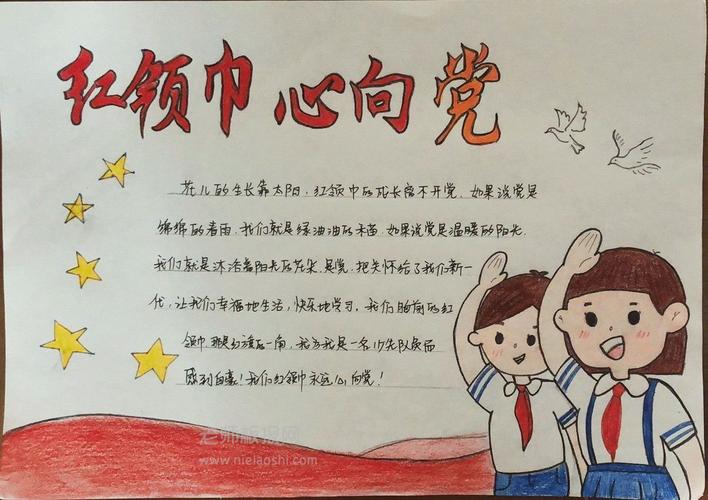 红领巾 心向党
花儿的生长靠太阳,红领巾的成长离不开党。如果说党是
绵绵的春雨,我们就是绿油油的禾苗。如果说党是温暖的阳光,
我们就是沐浴着阳光的花朵。是党,把关怀给了我们新一
代,让我们幸福地生活,快乐地学习。我们胸前的红
领巾,那是红旗的一角,我为我是一名少先队员而
感到自豪!我们红领巾永远心向党!
老师板报网
www.nielaoshi.com